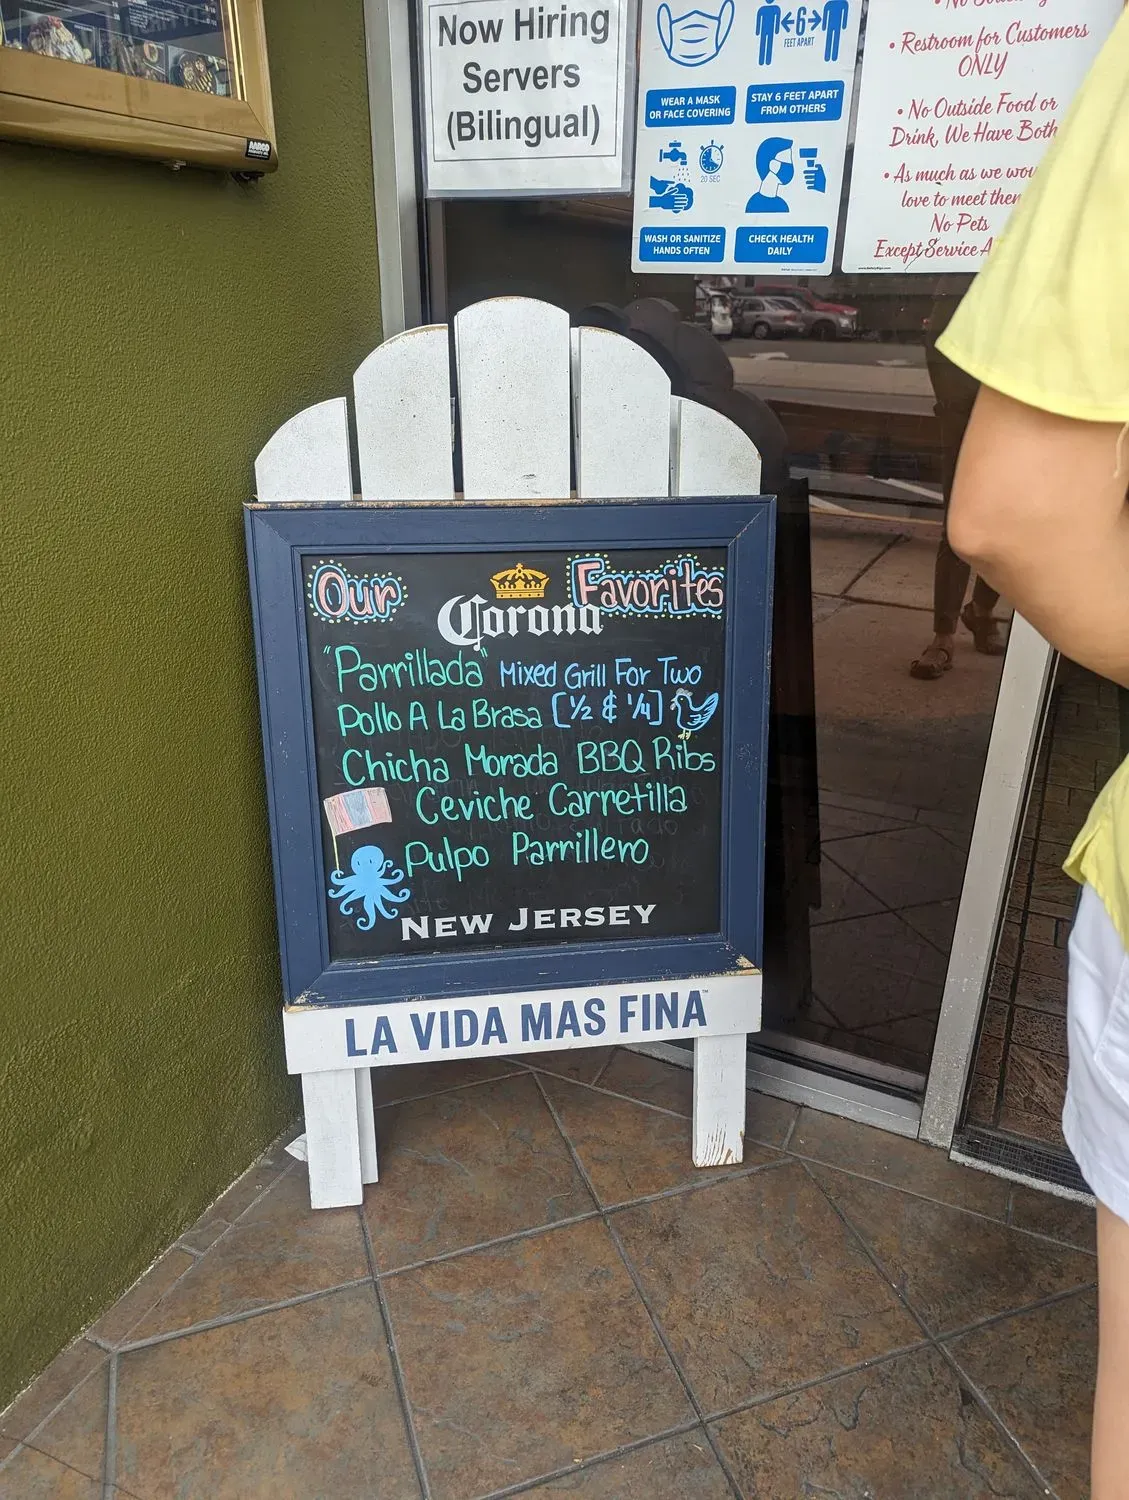 Now Hiring
Servers
(Bilingual)
6
FEET APART
WEAR A MASK
OR FACE COVERING
STAY 6 FEET APART
FROM OTHERS
20 SEC
WASH OR SANITIZE
HANDS OFTEN
CHECK HEALTH
DAILY
• Restroom for Customers
ONLY
• No Outside Food or
Drink, We Have Both
• As much as we
love to meet
No Pets
Except Service
Our Favorites
Corona
"Parrillada" Mixed Grill For Two
Pollo A La Brasa [1/2 & 1/4]
Chicha Morada BBQ Ribs
Ceviche Carretilla
Pulpo Parrillero
NEW JERSEY
LA VIDA MAS FINA™